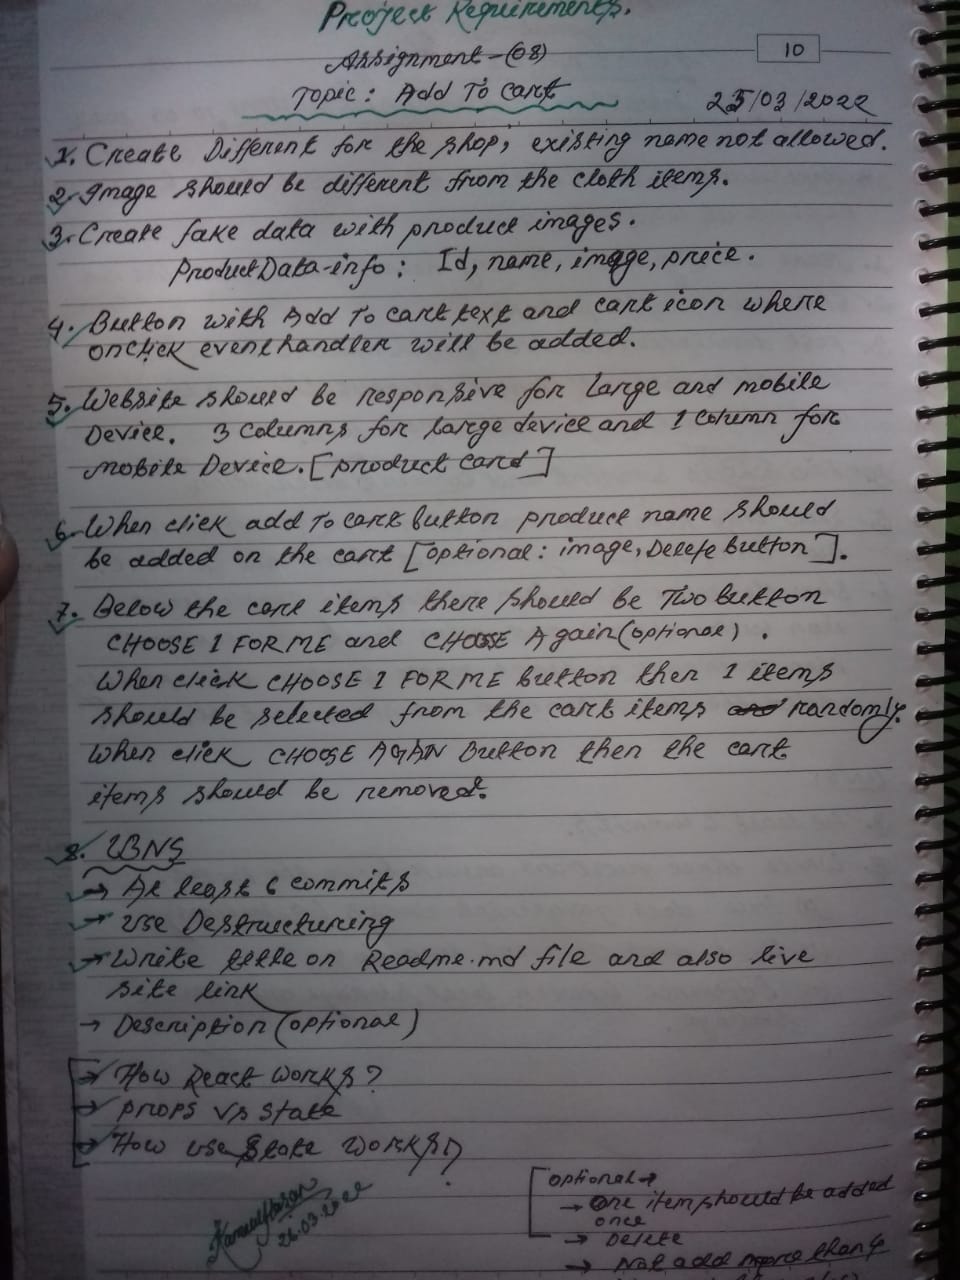 Project Requirements.
Assignment-(08)
10
Topic: Add To Cart
25/03/2022
1. Create Different for the shop, existing name not allowed.
2. Image should be different from the cloth items.
3. Create fake data with product images.
Product Data-info: Id, name, image, price.
4. Button with Add To cart text and cart icon where
onclick eventhandler will be added.
5. Website should be responsive for large and mobile
Device. 3 columns for large device and 1 column for
mobile Device. [product card]
6. When click add To cart button product name should
be added on the cart [optional: image, Delete button].
7. Below the cart items there should be Two button
CHOOSE 1 FOR ME and CHOOSE Again (optional).
When click CHOOSE 1 FOR ME button then 1 items
should be selected from the cart items randomly.
When click CHOOSE AGAIN Button then the cart
items should be removed.
8.
→ At least 6 commits
→ Use Destructuring
→ Write title on Readme.md file and also live
site link
→ Description (optional)
→ How React works?
→ props vs state
→ How useState works?
26.03.2022
optional→
→ One item should be added
once
→ Delete
→ Not add more than 4